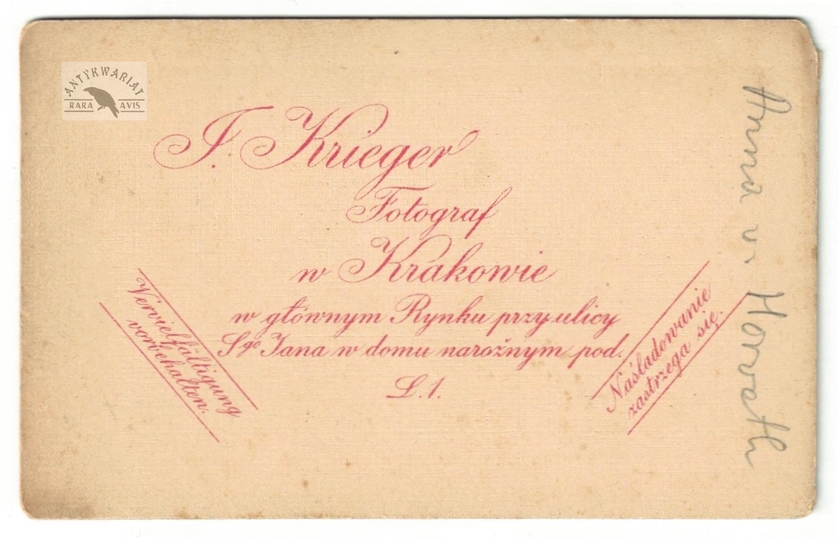 ANTYKWARIAT
RARA AVIS
I. Krieger
Fotograf
w Krakowie
w głównym Rynku przy ulicy
Sgo Jana w domu narożnym pod.
L.1.
Vervielfältigung
vorbehalten.
Naśladowanie
zastrzega się.
Anna v. Horvath